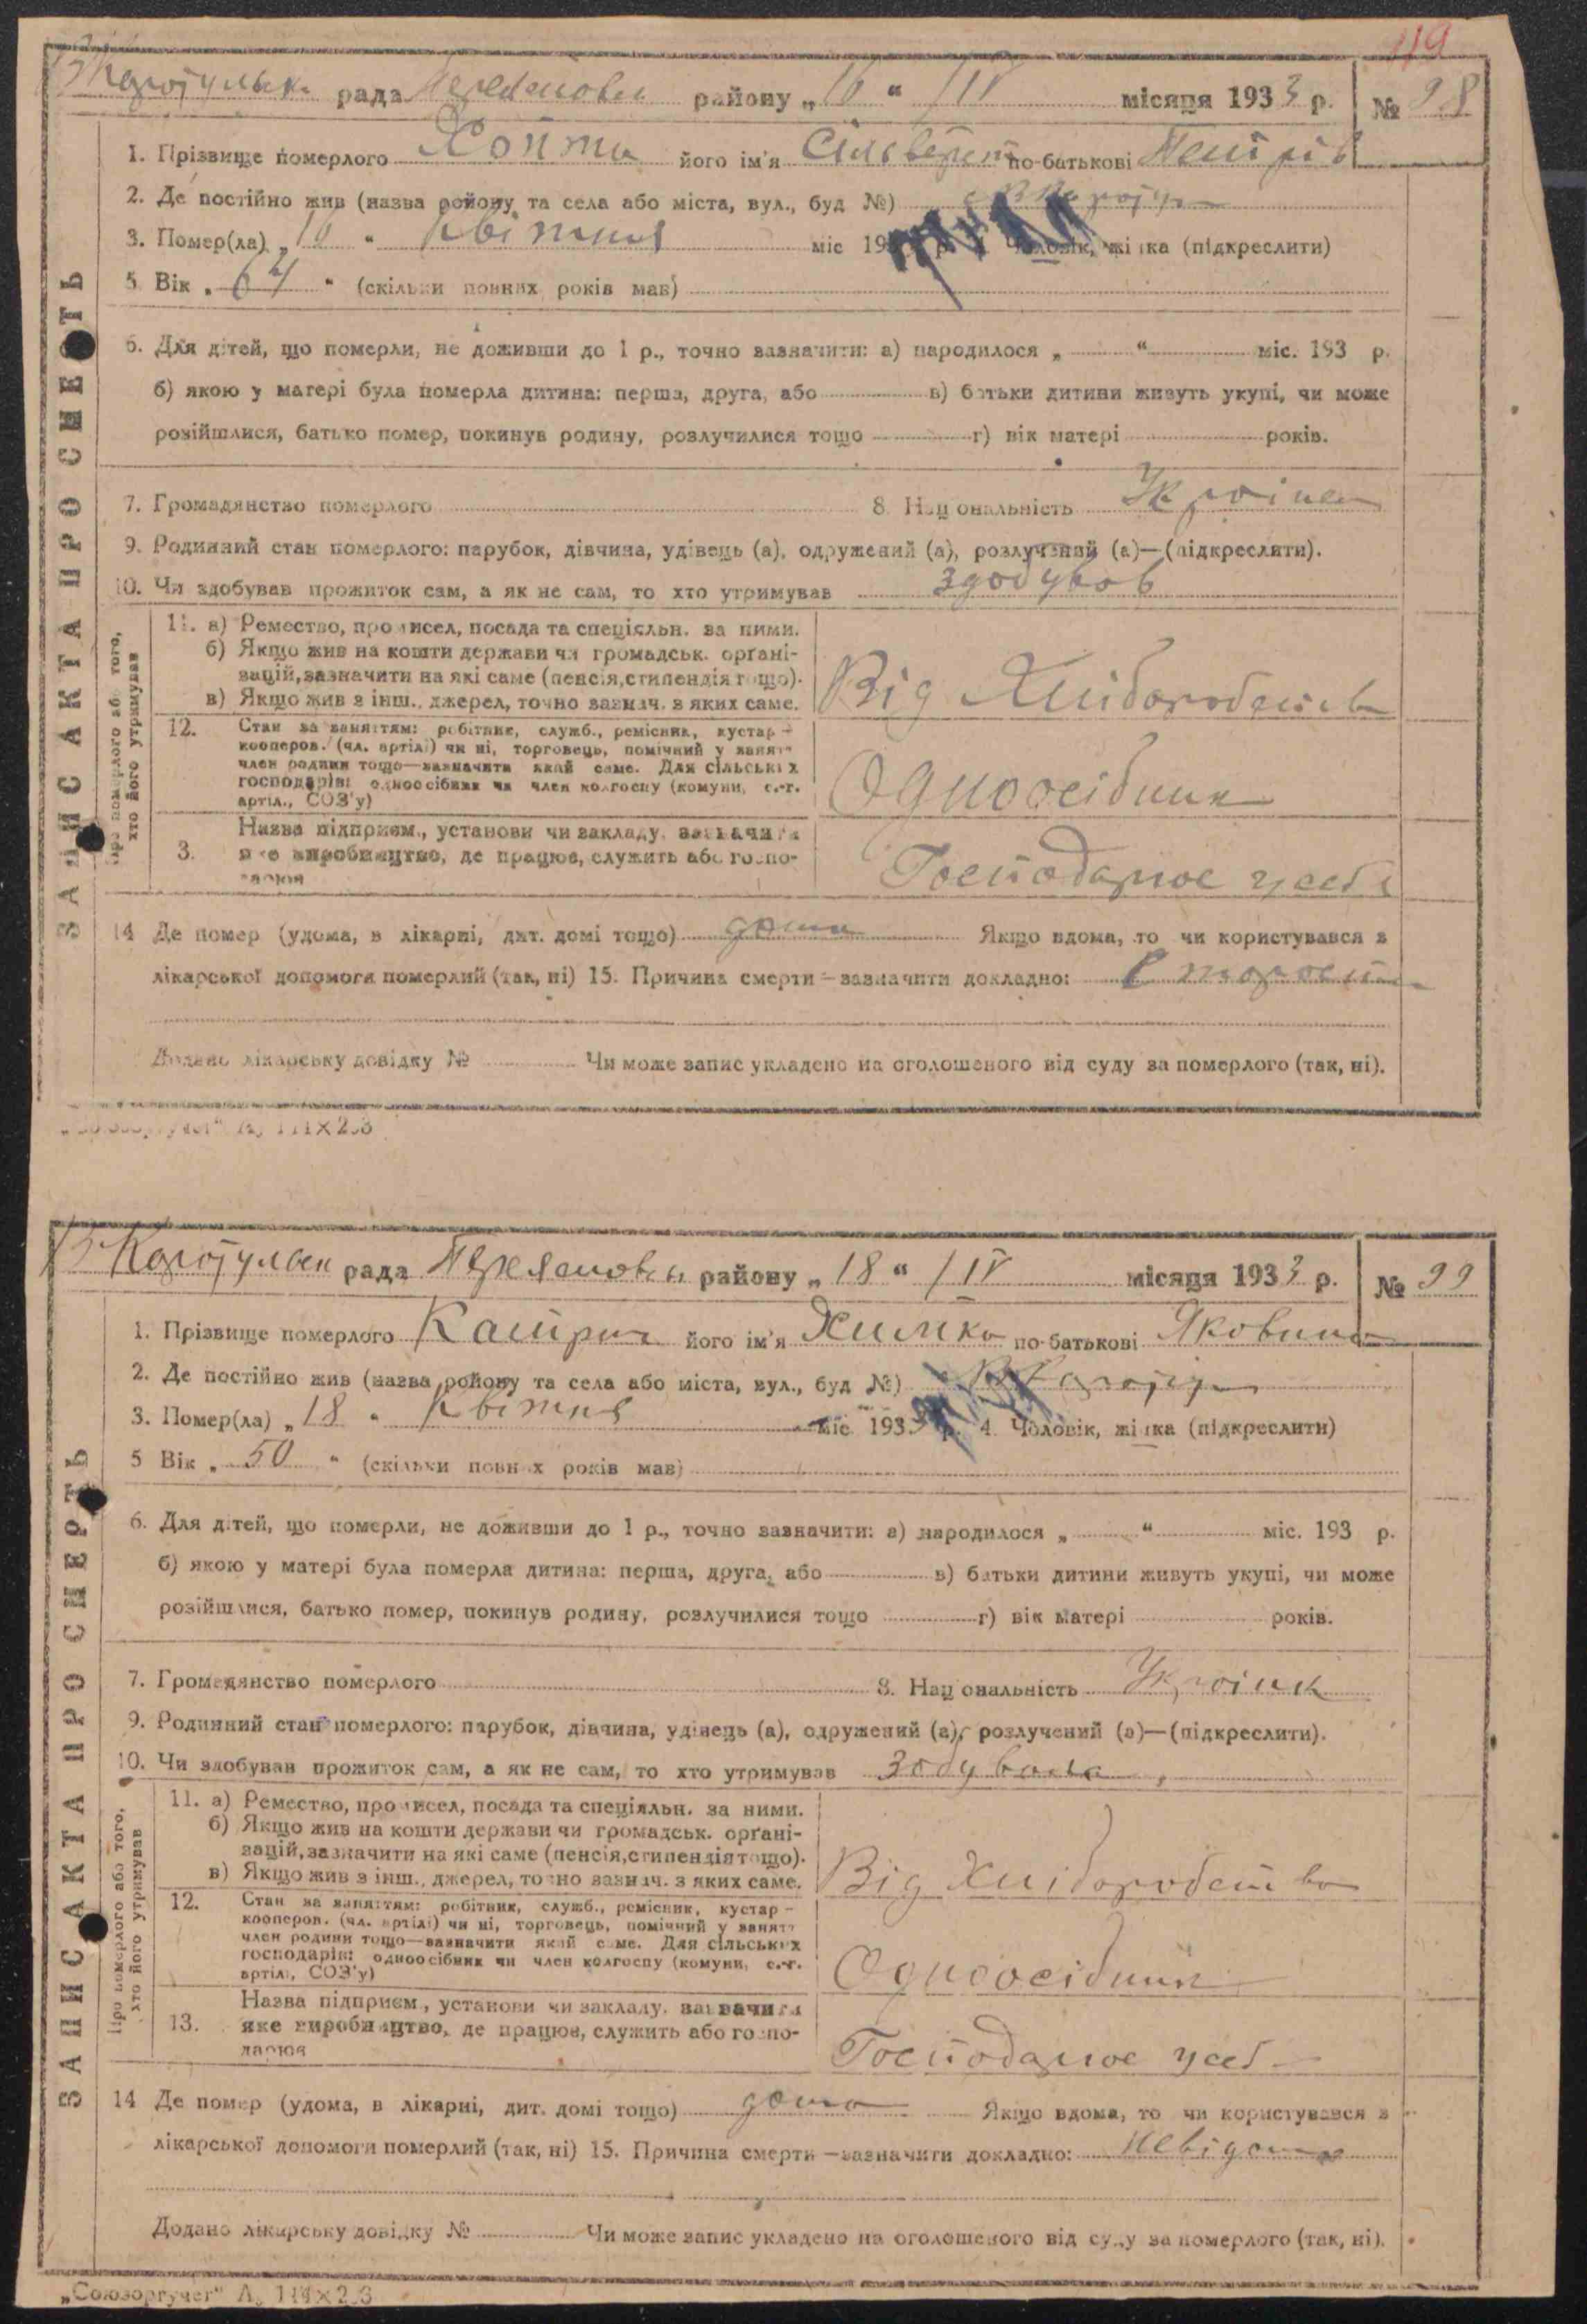 119
рада Переяслові району „ 16 “ /IV місяця 1933 р. № 98
1. Прізвище померлого його ім'я Сільверст по-батькові Петрів
2. Де постійно жив (назва району та села або міста, вул., буд №)
3. Помер(ла) „ 16 “ квітня міс 19 р. 4 Чоловік, жінка (підкреслити)
5 Вік „ 64 “ (скільки повних років мав)
6. Для дітей, що померли, не доживши до 1 р., точно зазначити: а) народилося „ “ міс. 193 р.
б) якою у матері була померла дитина: перша, друга, або в) батьки дитини живуть укупі, чи може
розійшлися, батько помер, покинув родину, розлучилися тощо г) вік матері років.
7. Громадянство померлого 8. Національність Українец
9. Родинний стан померлого: парубок, дівчина, удівець (а), одружений (а), розлучений (а)—(підкреслити).
10. Чи здобував прожиток сам, а як не сам, то хто утримував здобував
11. а) Ремество, промисел, посада та спеціяльн. за ними.
б) Якщо жив на кошти держави чи громадськ. орґані-
зацій, зазначити на які саме (пенсія, стипендія тощо).
в) Якщо жив з інш., джерел, точно зазнач. з яких саме. Від Хліборобства
12. Стан за заняттям: робітник, служб., ремісник, кустар –
кооперов. (чл. артілі) чи ні, торговець, помічний у занятт
член родини тощо—зазначити який саме. Для сільських
господарів: одноосібник чи член колгоспу (комуни, с.-г.
артіл., СОЗ'у) Одноосібник
Назва підприєм., установи чи закладу, зазначити
3. яке виробництво, де працює, служить або госпо-
дарює Господарює у себе
14 Де помер (удома, в лікарні, дит. домі тощо) дома Якщо вдома, то чи користувався з
лікарської допомоги померлий (так, ні) 15. Причина смерти – зазначити докладно: Старости
Додано лікарську довідку № Чи може запис укладено на оголошеного від суду за померлого (так, ні).
ЗАПИС АКТА ПРО СМЕРТЬ
Про померлого або того,
хто його утримував
рада Переяслови району „ 18 “ /IV місяця 1933 р. № 99
1. Прізвище померлого Катрич його ім'я Химка по-батькові Яковина
2. Де постійно жив (назва району та села або міста, вул., буд №)
3. Помер(ла) „ 18 “ квітня міс 1933 р. 4. Чоловік, жінка (підкреслити)
5 Вік „ 50 “ (скільки повних років мав)
6. Для дітей, що померли, не доживши до 1 р., точно зазначити: а) народилося „ “ міс. 193 р.
б) якою у матері була померла дитина: перша, друга, або в) батьки дитини живуть укупі, чи може
розійшлися, батько помер, покинув родину, розлучилися тощо г) вік матері років.
7. Громадянство померлого 8. Національність Українк
9. Родинний стан померлого: парубок, дівчина, удівець (а), одружений (а), розлучений (а)—(підкреслити).
10. Чи здобував прожиток сам, а як не сам, то хто утримував зобувала
11. а) Ремество, промисел, посада та спеціяльн. за ними.
б) Якщо жив на кошти держави чи громадськ. орґані-
зацій, зазначити на які саме (пенсія, стипендія тощо).
в) Якщо жив з інш., джерел, точно зазнач. з яких саме. Від хліборобства
12. Стан за заняттям: робітник, служб., ремісник, кустар –
кооперов. (чл. артілі) чи ні, торговець, помічний у занятт
член родини тощо—зазначити який саме. Для сільських
господарів: одноосібник чи член колгоспу (комуни, с.-г.
артіл., СОЗ'у) Одноосібник
Назва підприєм., установи чи закладу, зазначити
13. яке виробництво, де працює, служить або госпо-
дарює Господарює у себе
14 Де помер (удома, в лікарні, дит. домі тощо) дома Якщо вдома, то чи користувався з
лікарської допомоги померлий (так, ні) 15. Причина смерти – зазначити докладно: Невідома
Додано лікарську довідку № Чи може запис укладено на оголошеного від суду за померлого (так, ні).
ЗАПИС АКТА ПРО СМЕРТЬ
Про померлого або того,
хто його утримував
„Союзоргучет“